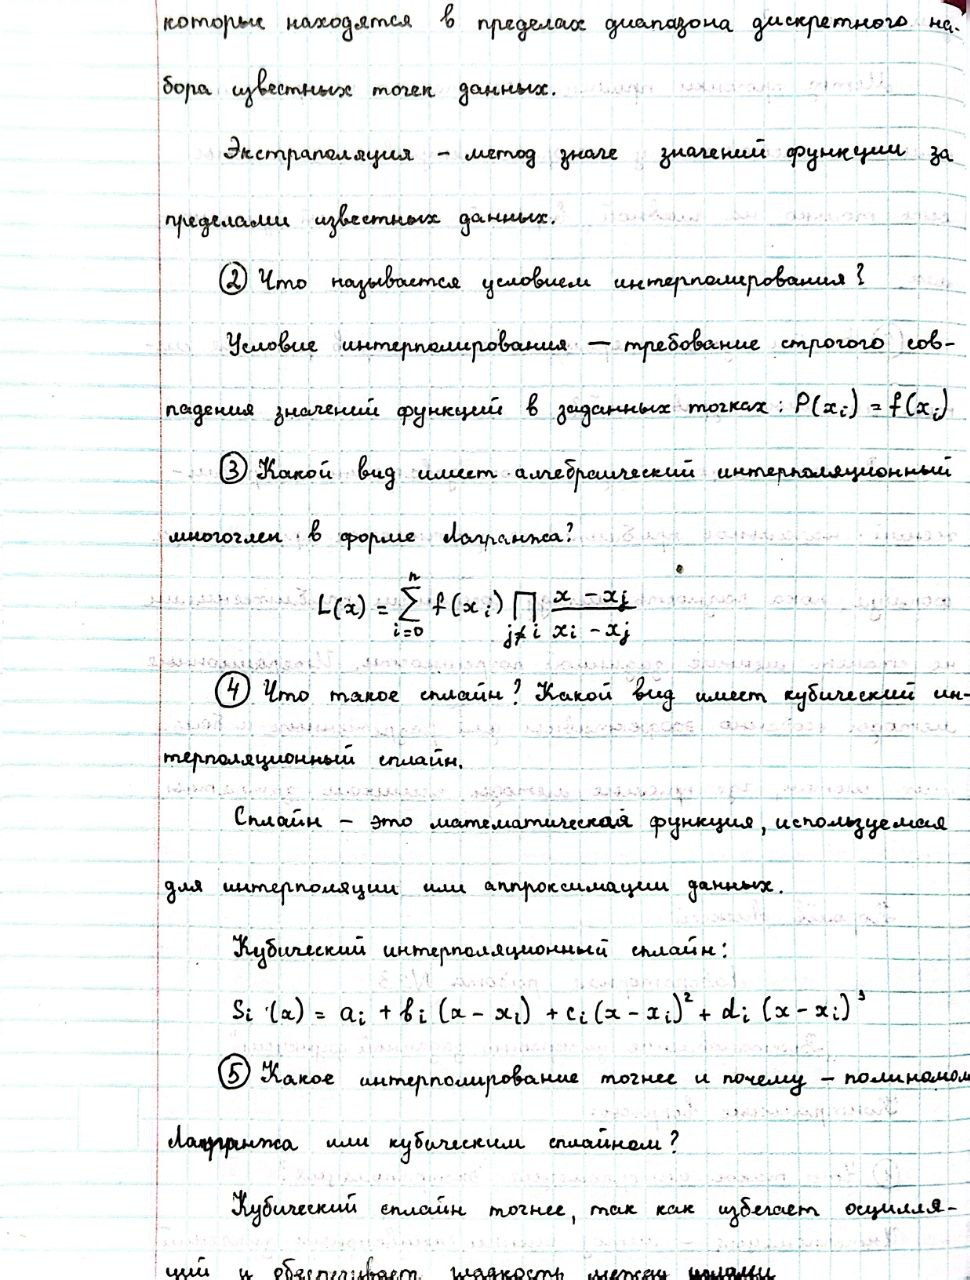 которые находятся в пределах диапазона дискретного на-
бора известных точек данных.
Экстраполяция – метод значе значений функции за
пределами известных данных.
② Что называется условием интерполирования?
Условие интерполирования — требование строгого сов-
падения значений функций в заданных точках: P(xᵢ) = f(xᵢ)
③ Какой вид имеет алгебраический интерполяционный
многочлен в форме Лагранжа?
L(x) = ∑ⁿᵢ₌₀ f(xᵢ) ∏_{j≠i} (x – xⱼ)/(xᵢ – xⱼ)
④ Что такое сплайн? Какой вид имеет кубический ин-
терполяционный сплайн.
Сплайн – это математическая функция, используемая
для интерполяции или аппроксимации данных.
Кубический интерполяционный сплайн:
Sᵢ (x) = aᵢ + bᵢ (x – xᵢ) + cᵢ (x – xᵢ)² + dᵢ (x – xᵢ)³
⑤ Какое интерполирование точнее и почему – полиномом
Лагранжа или кубическим сплайном?
Кубический сплайн точнее, так как избегает осцилля-
ций и обеспечивает гладкость между узлами